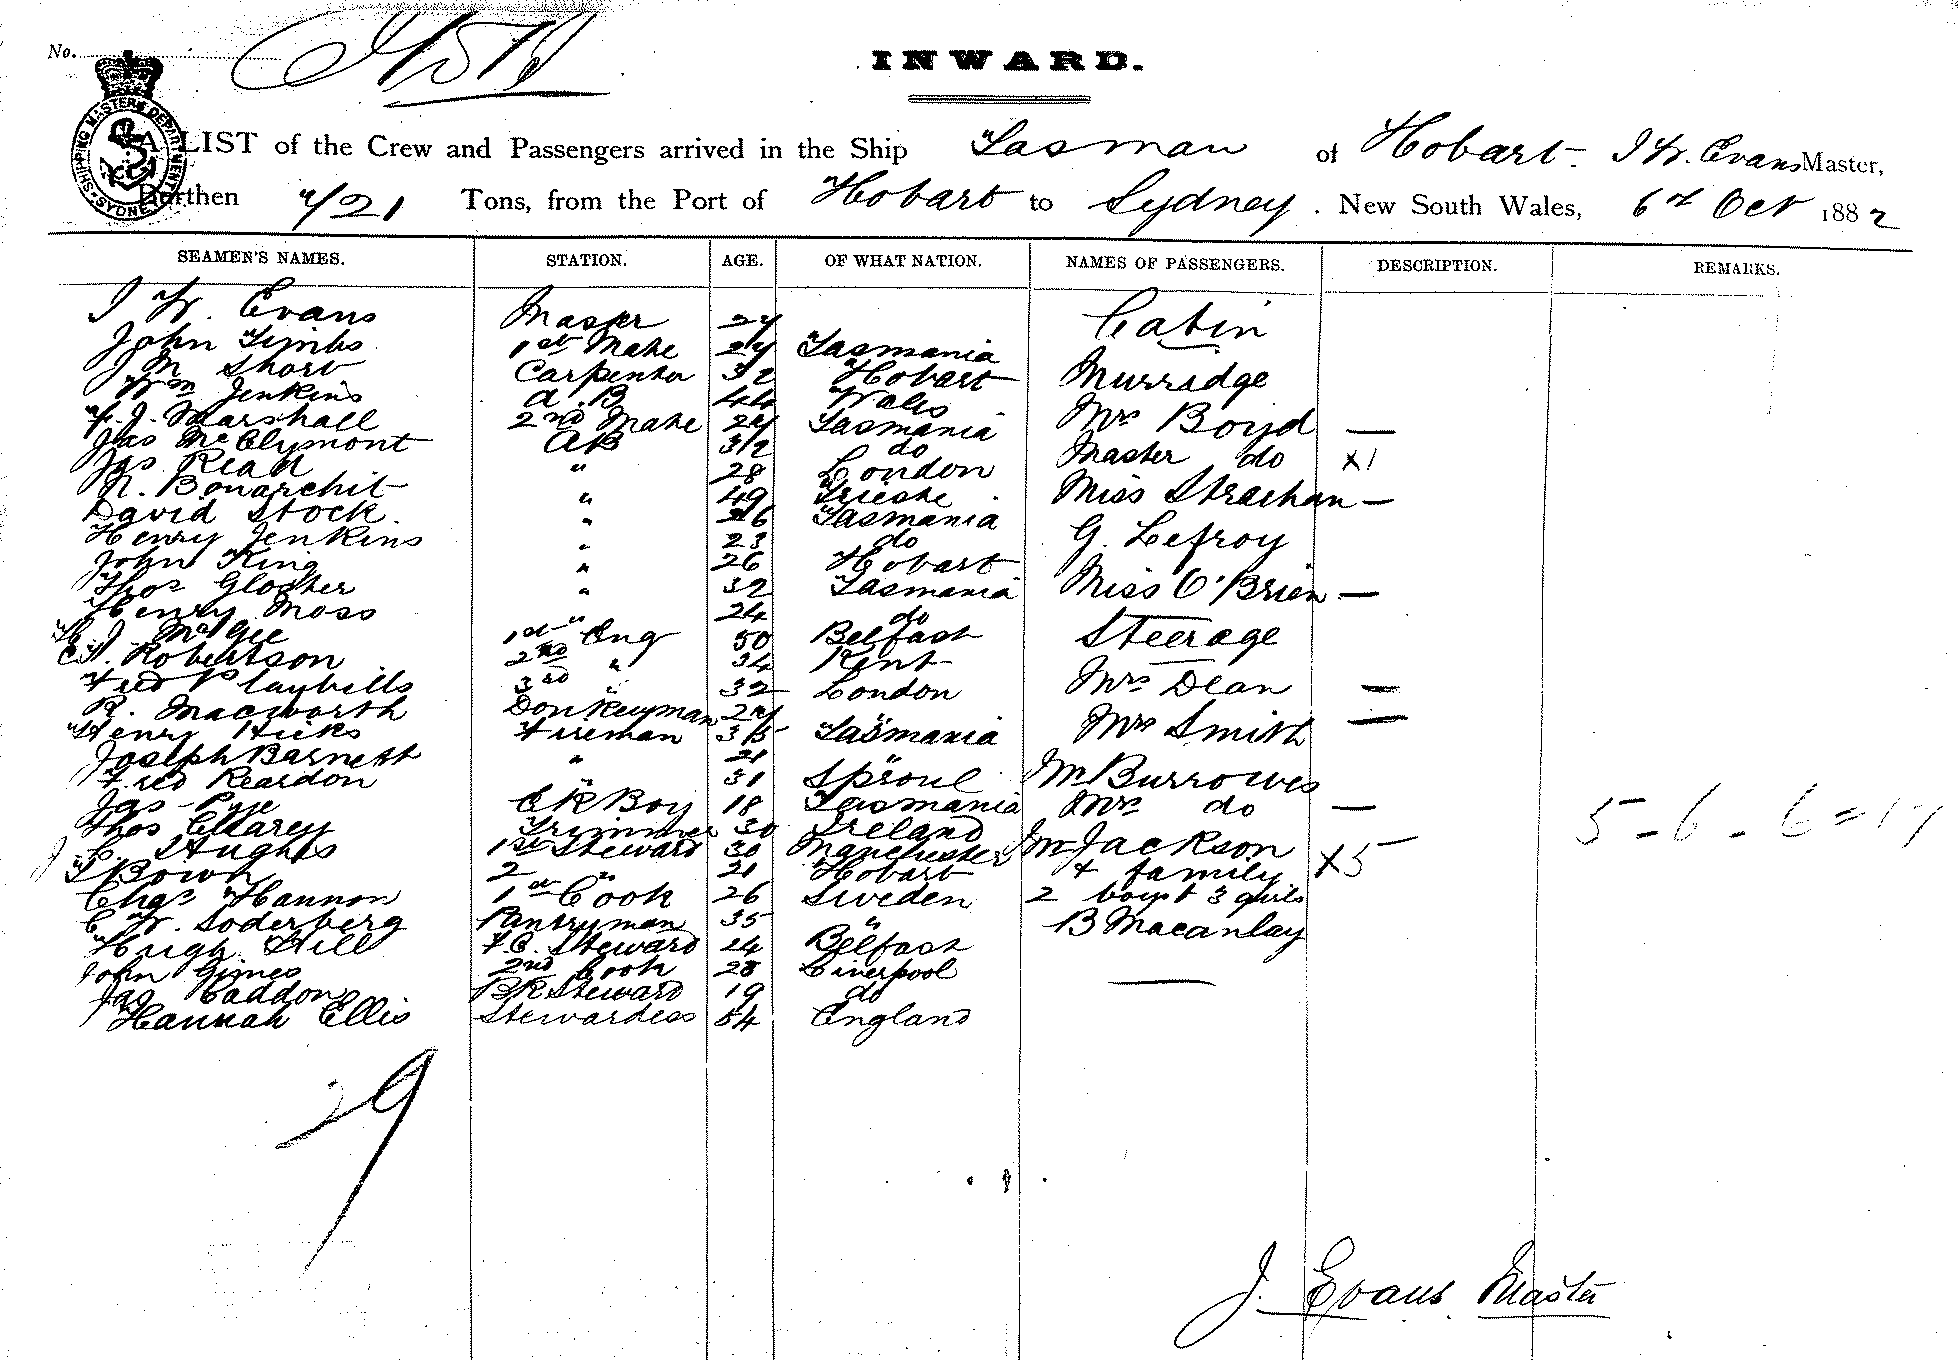 No.
INWARD.
SHIPPING MASTERS DEPARTMENT SYDNEY
A LIST of the Crew and Passengers arrived in the Ship Tasman of Hobart. J W. Evans Master,
Burthen 421 Tons, from the Port of Hobart to Sydney. New South Wales, 6th Oct 1882
SEAMEN'S NAMES. STATION. AGE. OF WHAT NATION. NAMES OF PASSENGERS. DESCRIPTION. REMARKS.
J W. Evans Master Cabin
John Timbs 1st Mate Tasmania
J M Short Carpenter 32 Hobart Murridge
Wm Jenkins A.B 44 Wales
J. Marshall 2nd Mate 24 Tasmania Mrs Boyd —
Jas McClymont AB 32 do Master do x1
Jas Read " 28 London
N. Bonarchit " 49 Trieste Miss Strachan —
David Stock " 26 Tasmania
Henry Jenkins " 23 do G. Lefroy
John King " 26 Hobart
Thos Gloster " 32 Tasmania Miss O'Brien —
Henry Moss " 24 do
J. McGee 1st Eng 50 Belfast Steerage
Robertson 2nd " 34 Kent
Fred Playbills 3rd " 32 London Mrs Dean —
R. Macworth Donkeyman 24 "
Henry Hicks Fireman 35 Tasmania Mrs Smith —
Joseph Barnett " 21 "
Fred Reardon " 31 Sproul Jn Burrowes
Jas Pye CK Boy 18 Tasmania Mrs do —
Thos Ellarey Trimmer 30 Ireland
C. Hughes 1st Steward 30 Manchester Jn Jackson x5
Bown 2 " 21 Hobart + family
Chas Hannon 1st Cook 26 Sweden 2 boys + 3 girls
C W. Soderberg Pantryman 35 " B Macanlay
Hugh Hill F.C. Steward 24 Belfast
John Gimes 2nd Cook 28 Liverpool
Jas Caddon BK Steward 19 do
Hannah Ellis Stewardess 54 England
5 - 6 - 6 = 17
29
J. Evans Master